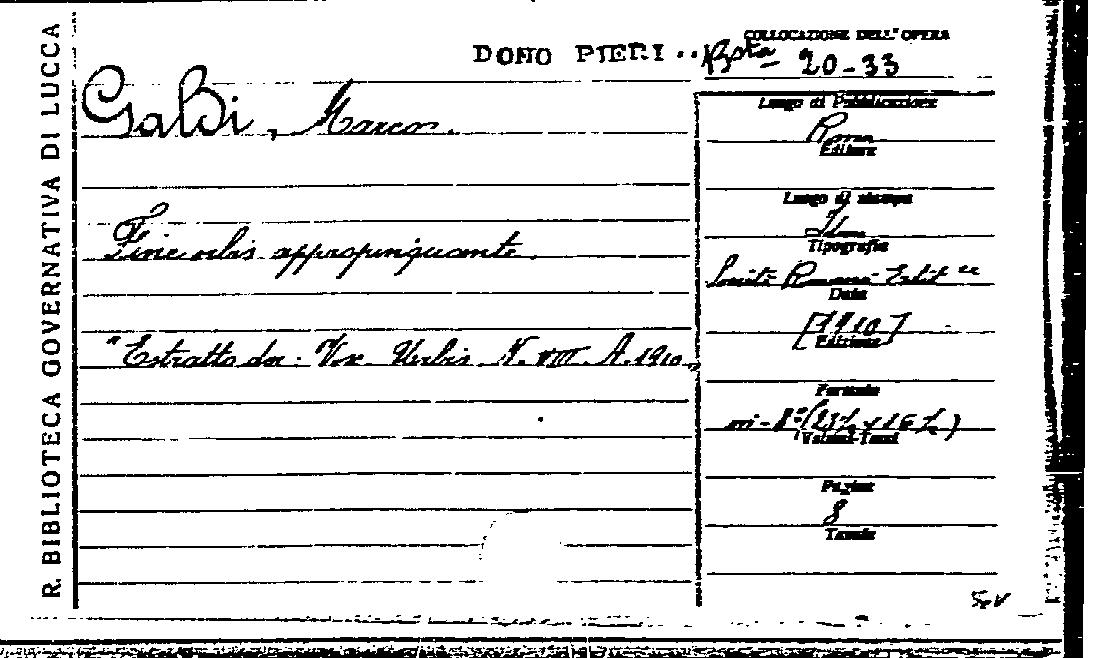 R. BIBLIOTECA GOVERNATIVA DI LUCCA
DONO PIERI
COLLOCAZIONE DELL'OPERA
Bsta 20-33
Galdi, Marco.
Fine orbis appropinquante.
"Estratto da: Vox Urbis N. VIII. A. 1910.
Luogo di Pubblicazione
Roma
Editore
Luogo di stampa
Tipografia
Società Romana Edit
Data
[1910]
Edizione
Formato
in-8°
Volumi-Tomi
Pagine
8
Tavole